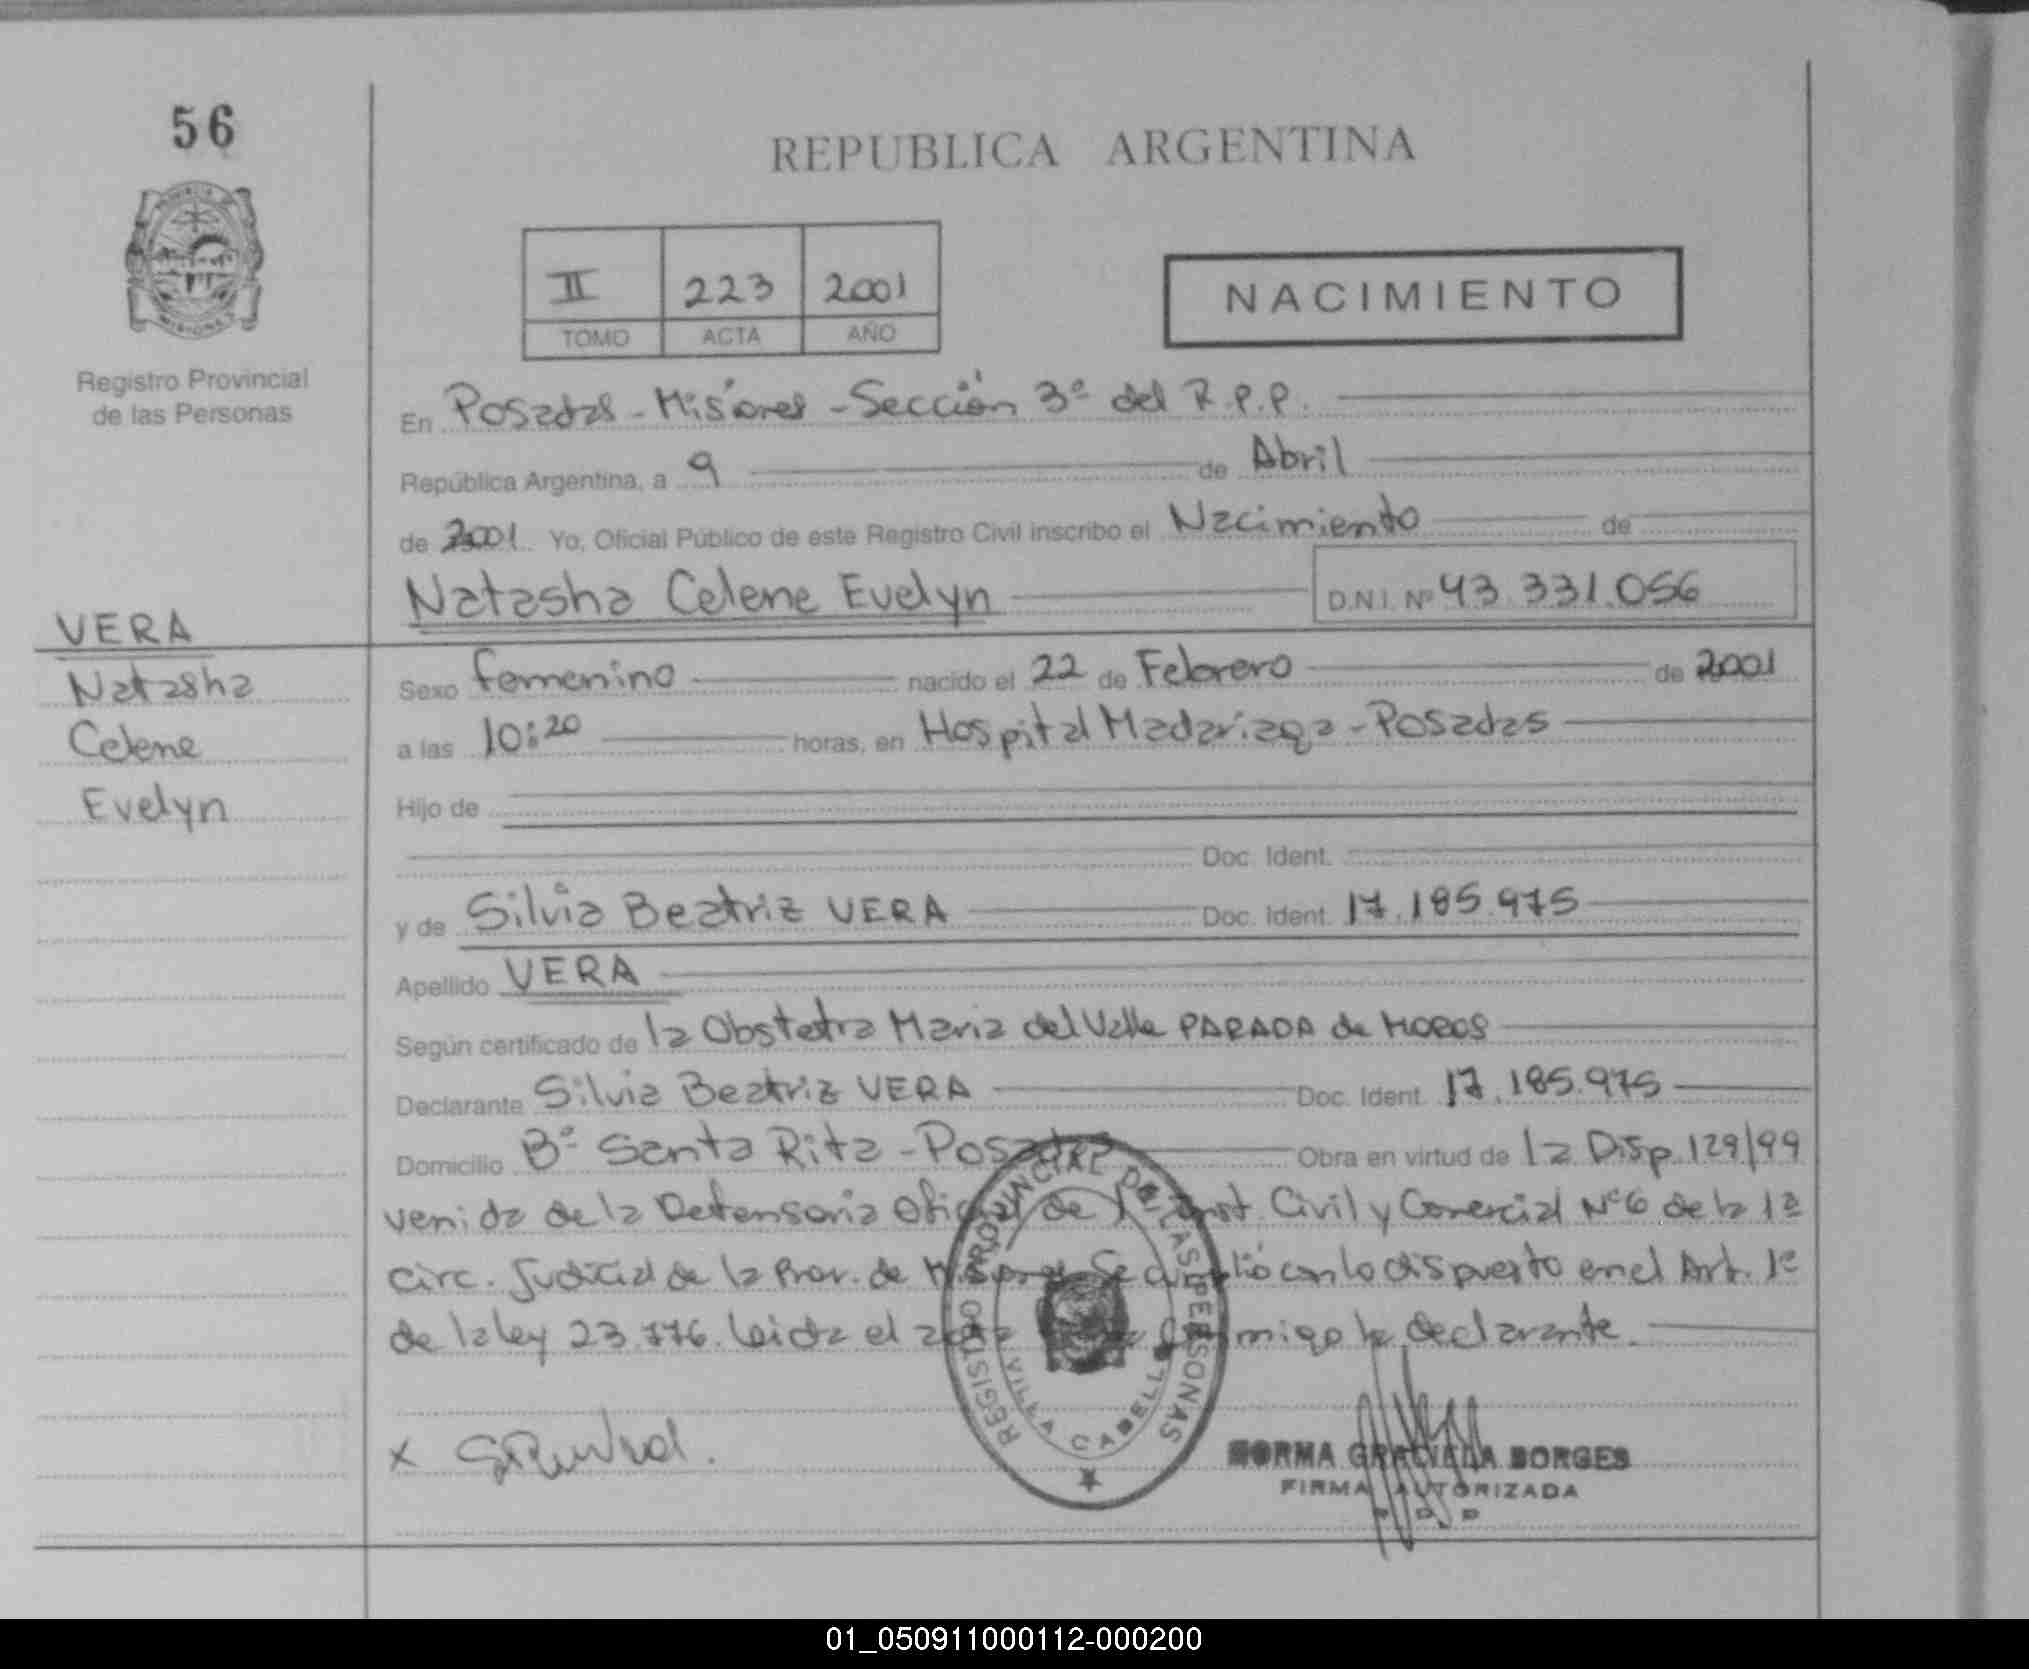 56
REPUBLICA ARGENTINA
II 223 2001
TOMO ACTA AÑO
NACIMIENTO
Registro Provincial
de las Personas
En Posadas - Misiones - Sección 3ª del R.P.P.
República Argentina, a 9 de Abril
de 2001 Yo, Oficial Público de este Registro Civil inscribo el Nacimiento de
Natasha Celene Evelyn D.N.I. Nº 43.331.056
VERA
Natasha
Celene
Evelyn
Sexo femenino nacido el 22 de Febrero de 2001
a las 10:20 horas, en Hospital Madariaga - Posadas
Hijo de
Doc. Ident.
y de Silvia Beatriz VERA Doc. Ident. 17.185.975
Apellido VERA
Según certificado de la Obstetra Maria del Valle PARADA de MOROS
Declarante Silvia Beatriz VERA Doc. Ident. 17.185.975
Domicilio Bº Santa Rita - Posadas Obra en virtud de la Disp. 129/99
venida de la Defensoria Oficial de 1ª Inst. Civil y Comercial Nº 6 de la 1ª
circ. Judicial de la Prov. de Misiones Se cumplió con lo dispuesto en el Art. 1º
de la ley 23.776. Leida el acta conmigo la declarante.
REGISTRO PROVINCIAL DE LAS PERSONAS
VILLA CABELLO
x
NORMA GRACIELA BORGES
FIRMA AUTORIZADA
01_050911000112-000200